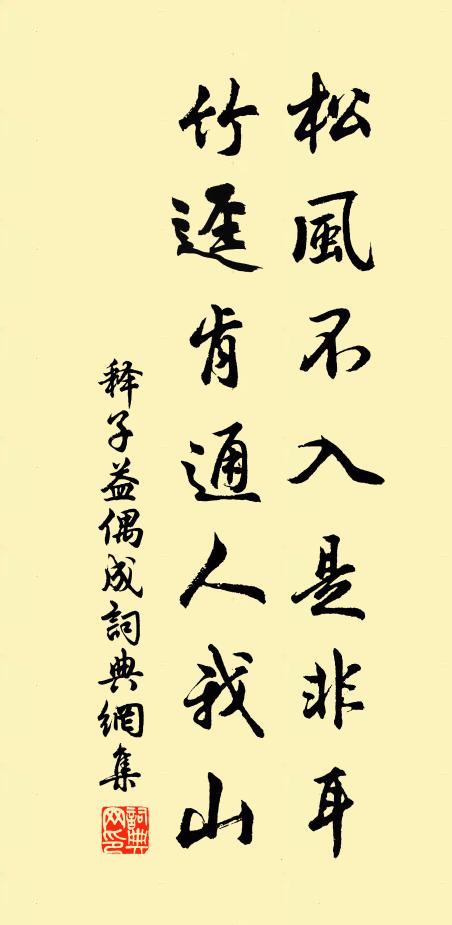 松風不入是非耳
竹逕肯通人我山
释子益偶成詞典網集
詞典网印